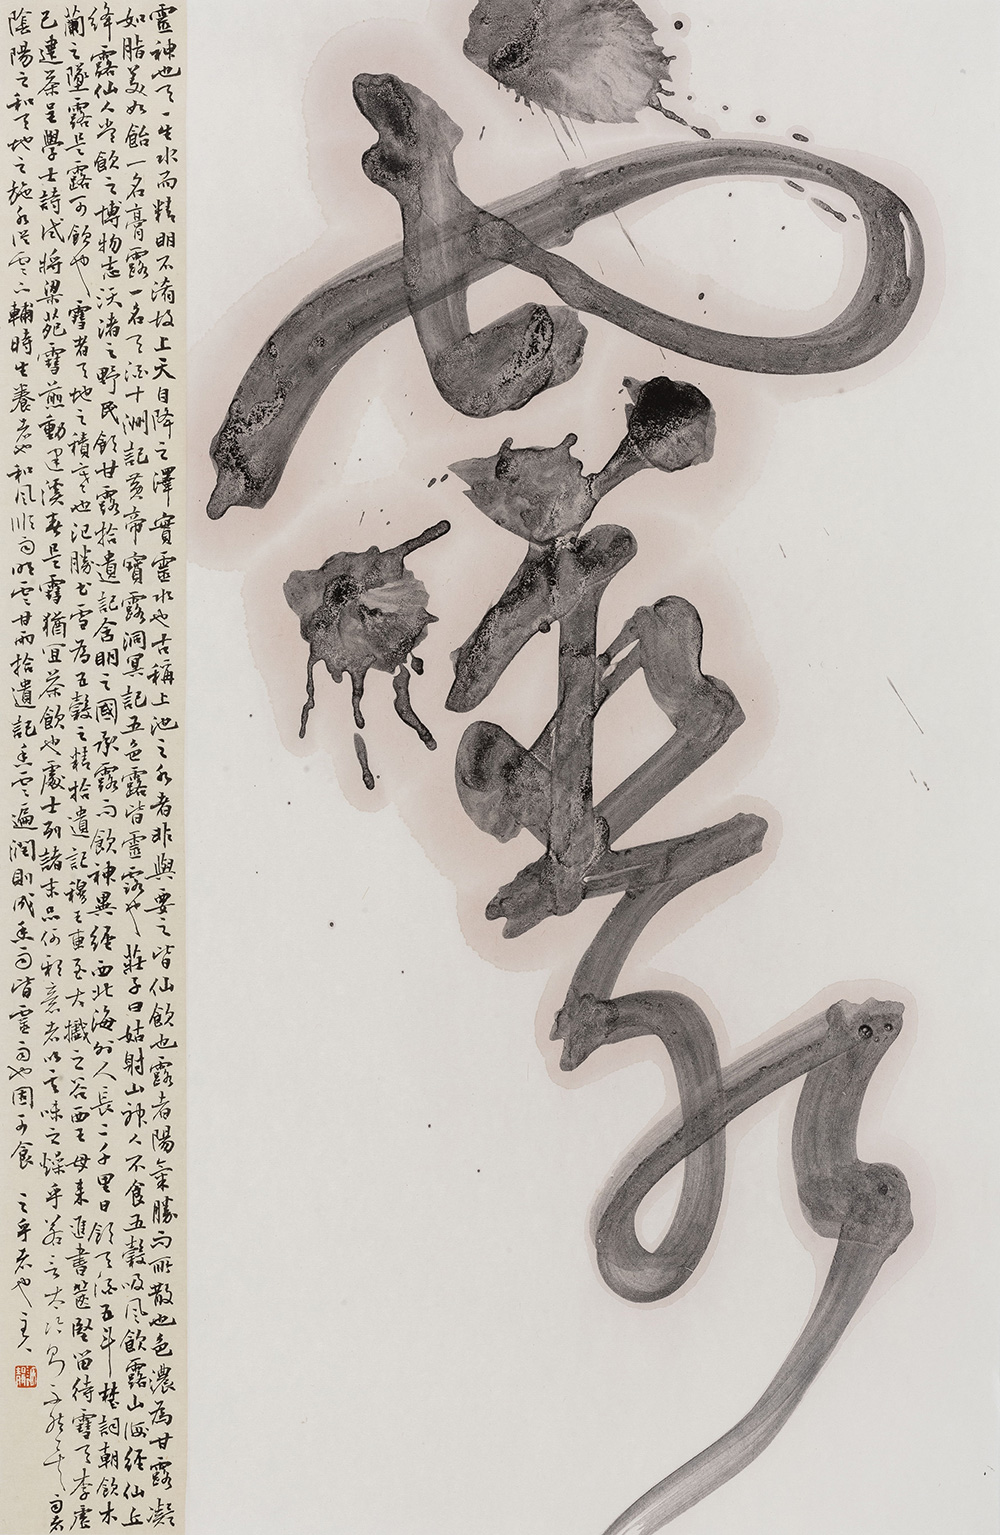 靈水
靈神也天一生水而精明不淆故上天自降之澤實靈水也古稱上池之水者非與要之皆仙飲也露者陽氣勝而所散也色濃為甘露凝
如脂美如飴一名膏露一名天酒十洲記黃帝寶露洞冥記五色露皆靈露也莊子曰姑射山神人不食五穀吸風飲露山海經仙丘
絳露仙人常飲之博物志沃渚之野民飲甘露拾遺記含明之國承露而飲神異經西北海外人長二千里日飲天酒五斗楚詞朝飲木
蘭之墜露是露可飲也雪者天地之積寒也氾勝書雪為五穀之精拾遺記穆王東至大之谷西王母來進書篋堅留待雪天李虛
己建茶呈學士詩試將梁苑雪煎動建溪春是雪猶宜茶飲也處士列諸末品何耶意者以其味之燥乎若言太冷則不然矣雨者
陰陽之和天地之施水從雲下輔時生養者也和風順雨明雲甘雨拾遺記香雲遍潤則成香雨皆靈雨也固可食 之乎者也主人